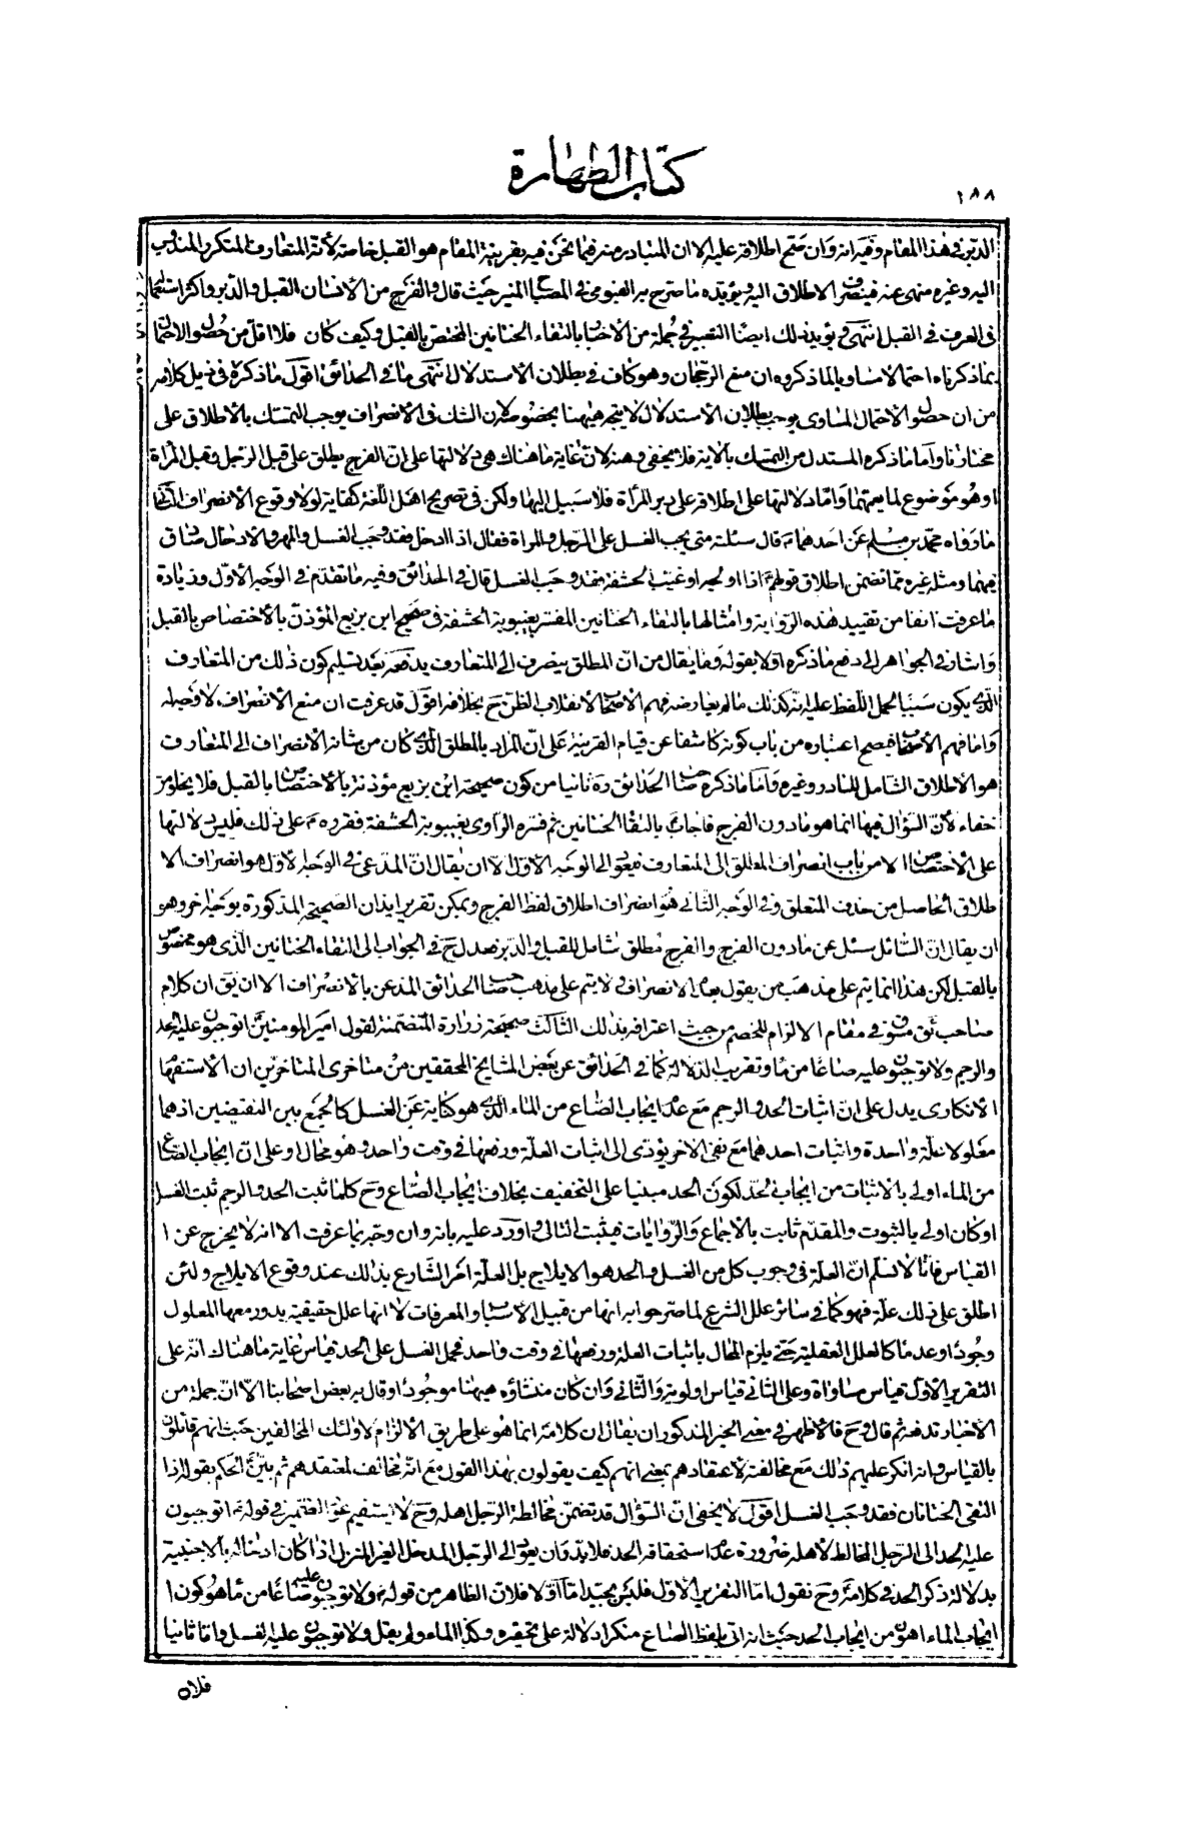 كتاب الطهارة
١٨٨
الدبر في هذا المقام وفيه انه وان صحّ اطلاقه عليه الا ان المتبادر منه فيما نحن فيه بقرينة المقام هو القبل خاصة لأنه المتعارف المتكرر المندوب
اليه وغيره منهى عنه فينصرف الاطلاق اليه ويؤيده ما صرح به الفيومى في المصباح المنير حيث قال والفرج من الأنسان القبل والدبر واكثر استعماله
في العرف في القبل انتهى ويؤيد ذلك ايضا التعبير في جملة من الأخبار بالتقاء الختانين المختص بالقبل وكيف كان فلا اقل من حصول الاحتمال
بما ذكرناه احتمالا مساويا لما ذكروه ان منع الرجحان وهو كاف في بطلان الاستدلال انتهى ما في الحدائق اقول ما ذكره في ذيل كلامه
من ان حصول الاحتمال المساوى يوجب بطلان الأستدلال لا يتجه هيهنا بخصوصه لأن الشك في الأنصراف يوجب التمسك بالأطلاق على
مختارنا واما ما ذكره المستدل من التمسك بالاية فلا يخفى وهنه لان غاية ما هناك هي دلالتها على انّ الفرج يطلق على قبل الرجل وقبل المرأة
او هو موضوع لما يعمّهما وامّا دلالتها على اطلاقه على دبر المرأة فلا سبيل اليها ولكن في تصريح اهل اللغة كفاية لولا وقوع الأنصراف الثاني
ما رواه محمّد بن مسلم عن احدهما ع قال سئلته متى يجب الغسل على الرّجل والمراة فقال اذا ادخل فقد وجب الغسل والمهر والادخال صادق
فيهما ومثله غيره مما تضمن اطلاق قولهم ع اذا اولجه او غيب الحشفة فقد وجب الغسل قال في الحدائق وفيه ما تقدّم في الوجه الأوّل وزيادة
ما عرفت انفا من تقييد هذه الرّواية وامثالها بالتقاء الختانين المفسّر بغيبوبة الحشفة في صحيح ابن بزيع المؤذن بالأختصاص بالقبل
واشار في الجواهر الى دفع ما ذكره اولا بقوله وما يقال من انّ المطلق ينصرف الى المتعارف يدفعه بعد تسليم كون ذلك من المتعارف
الذى يكون سببا لحمل اللفظ عليه انه كذلك ما لم يعارضه فهم الأصحاب لانقلاب الظن ح بخلافه اقول قد عرفت ان منع الأنصراف لا وجه له
واما فهم الأصحاب فيصح اعتباره من باب كونه كاشفا عن قيام القرينة على انّ المراد بالمطلق الذى كان من شانه الانصراف الى المتعارف
هو الاطلاق الشامل للنادر وغيره وامّا ما ذكره صاحب الحدائق ره ثانيا من كون صحيحة ابن بزيع مؤذنة بالأختصاص بالقبل فلا يخلو من
خفاء لأنّ السّؤال فيها انما هو ما دون الفرج فاجاب ع بالتقاء الختانين ثم فسّره الرّاوى بغيبوبة الحشفة فقرره ع على ذلك فليس دلالتها
على الأختصاص الا من باب انصراف المطلق الى المتعارف فيعود الى الوجه الاول الا ان يقال انّ المدّعى في الوجه الأوّل هو انصراف الا
طلاق الحاصل من حذف المتعلق وفي الوجه الثاني هو انصراف اطلاق لفظ الفرج ويمكن تقرير ايذان الصّحيحة المذكورة بوجه اخر وهو
ان يقال انّ السّائل سئل عن ما دون الفرج والفرج مطلق شامل للقبل والدّبر فعدل ع في الجواب الى التقاء الختانين الّذى هو مخصوص
بالقبل لكن هذا انما يتم على مذهب من يقول بعدم الانصراف ولا يتم على مذهب صاحب الحدائق المذعن بالأنصراف الا ان يق ان كلام
صاحب ئق مسوق في مقام الالزام للخصم من حيث اعترافه بذلك الثالث صحيحة زرارة المتضمنة لقول امير المومنين ع اتوجبون عليه الحد
والرجم ولا توجبون عليه صاعا من ماء وتقريب الدّلالة كما في الحدائق عن بعض المشايخ المحققين من متاخرى المتأخرين ان الاستفهام
الانكارى يدل على انّ اثبات الحد والرجم مع عدم ايجاب الصّاع من الماء الذى هو كناية عن الغسل كالجمع بين النقيضين اذ هما
معلولا علّة واحدة واثبات احدهما مع نفى الاخر يؤدى الى اثبات العلّة ورفعها في وقت واحد وهو محال او على انّ ايجاب الصّاع
من الماء اولى بالاثبات من ايجاب الحد لكون الحد مبنيا على التخفيف بخلاف ايجاب الصّاع وح كلما ثبت الحد والرجم ثبت الغسل
او كان اولى بالثبوت والمقدّم ثابت بالأجماع والرّوايات فيثبت التالى واورد عليه بانه وان وجّه بما عرفت الا انه لا يخرج عن ا
القياس فانا لا نسلم انّ العلّة في وجوب كل من الغسل والحد هو الايلاج بل العلّة امر الشّارع بذلك عند وقوع الايلاج ولئن
اطلق على ذلك علّة فهو كما في سائر علل الشرع لما صرحوا به انها من قبيل الأسباب والمعرفات لا انها علل حقيقية يدور معها المعلول
وجودا وعدما كالعلل العقلية حتى يلزم المحال باثبات العلة ورفعها في وقت واحد فحمل الغسل على الحد قياس غاية ما هناك انّه على
التقرير الاوّل قياس مساواة وعلى الثاني قياس اولوية والثّانى وان كان منشاؤه هيهنا موجودا وقال به بعض اصحابنا الّا انّ جملة من
الأخبار تدفعه ثم قال وح فالأظهر في معنى الخبر المذكور ان يقال ان كلامه ع انما هو على طريق الألزام لأولئك المخالفين حيث انهم قائلون
بالقياس وانه انكر عليهم ذلك مع مخالفته لأعتقادهم بمعنى انهم كيف يقولون بهذا القول مع انّه مخالف لمعتقدهم ثم بيّن ع الحكم بقوله اذا
التقى الختانان فقد وجب الغسل اقول لا يخفى انّ السّؤال قد تضمّن مخالطة الرّجل اهله وح لا يستقيم عود الضّمير في قوله ع اتوجبون
عليه الحد الى الرّجل المخالط لأهله ضرورة عدم استحقاقه الحد فلا بد وان يعود الى الرجل المدخل الغير المنزل اذا كان ادخاله بالاجنبية
بدلالة ذكر الحد في كلامه ع وح نقول امّا التقرير الأول فليس بجيّد امّا اوّلا فلان الظاهر من قوله ع ولا توجبون عليه صاعا من ماء هو كون ا
ايجاب الماء اهون من ايجاب الحد حيث انه اتى بلفظ الصّاع منكرا دلالة على تحقيره وكذا الماء ولم يقل ولا توجبون عليه الغسل وامّا ثانيا
فلان